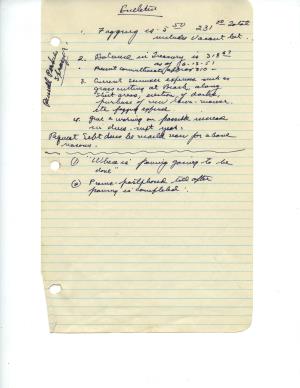 Bulletin
1. Fogging is 5.50 231.00 Total
includes Vacant lots.
2. Balance in Treasury is 318
as of 10-13-51
Present commitments approx 310
3. Current summer expense such as
grass cutting at Beach, along
areas, erection of docks,
purchase of new lawn-mower,
etc fogging expense
4. Give a warning on possible increase
in dues - next year.
Request that dues be made now for above
reasons.
(1) "When is" paving going to be
done"
(2) Prune - postponed till after
paving is completed.